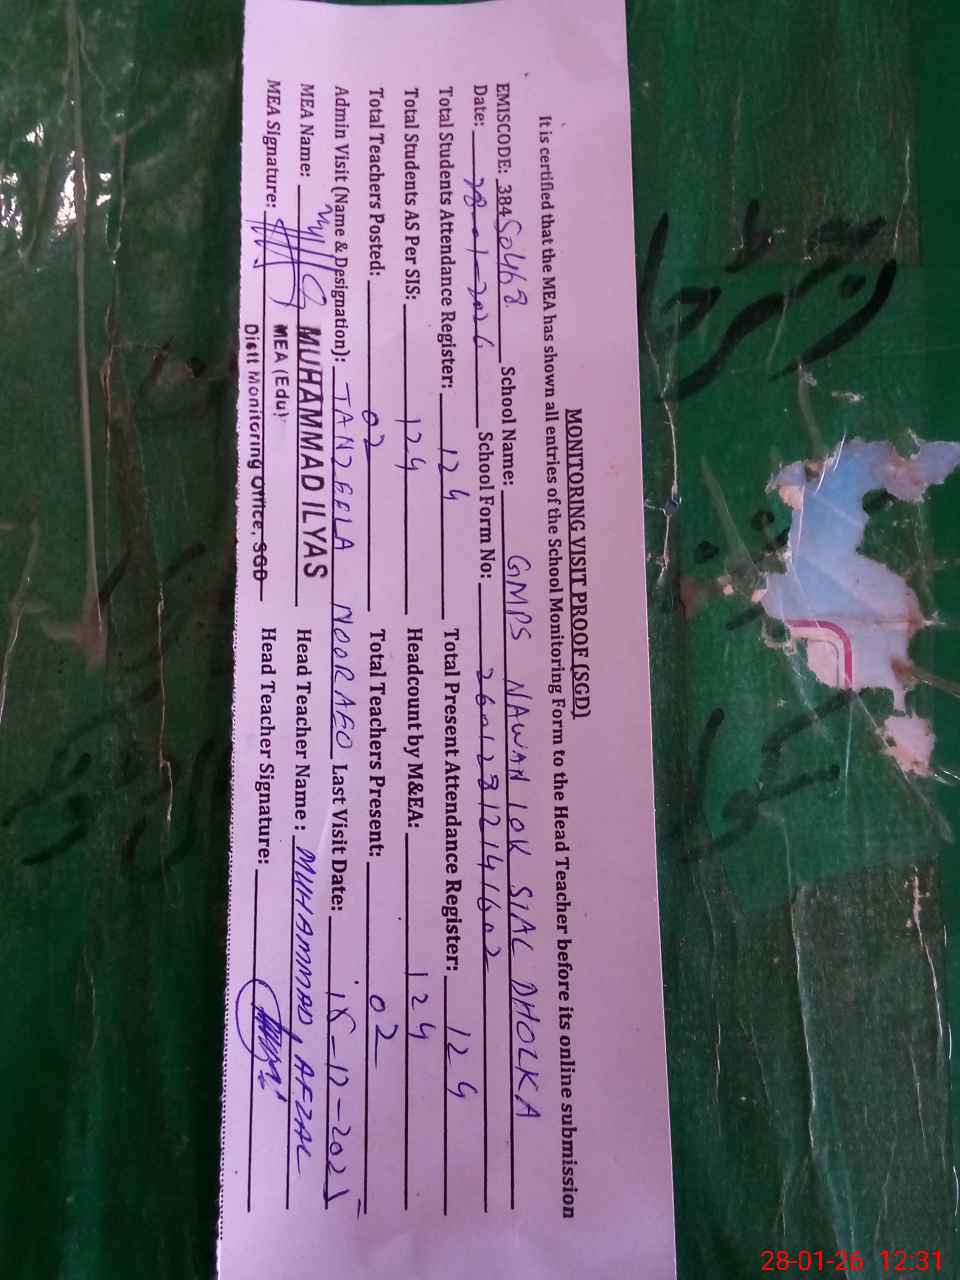 MONITORING VISIT PROOF (SGD)
It is certified that the MEA has shown all entries of the School Monitoring Form to the Head Teacher before its online submission
EMISCODE: 38450468 School Name: GMPS NAWAN LOK SIAL DHOLKA
Date: 28-01-2026 School Form No: 26012812141602
Total Students Attendance Register: 124 Total Present Attendance Register: 124
Total Students AS Per SIS: 124 Headcount by M&EA: 124
Total Teachers Posted: 02 Total Teachers Present: 02
Admin Visit (Name & Designation): TANZEELA NOOR AEO Last Visit Date: 15-12-2025
MEA Name: MUHAMMAD ILYAS Head Teacher Name: MUHAMMAD AFZAL
MEA Signature: MEA (Edu) Head Teacher Signature:
Distt Monitoring Office, SGD
28-01-26 12:31